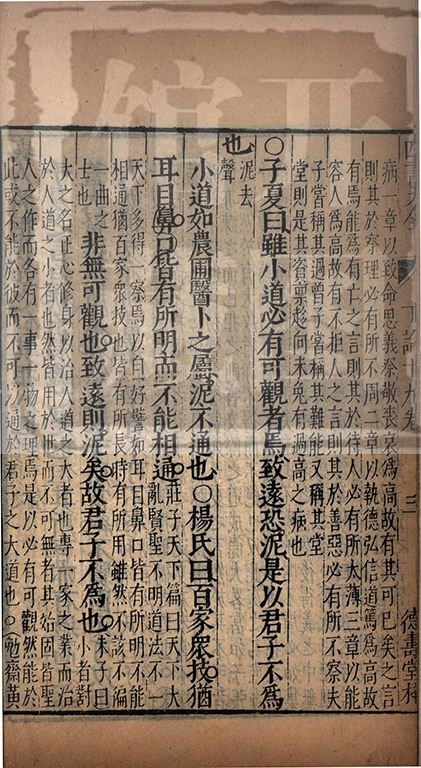 四書大全 下論十九卷 三 德壽堂梓
病一章以致命思義祭敬喪哀爲高故有其可已矣之言
則其於察理必有所不周二章以執德弘信道篤爲高故
有焉能爲有亡之言則其於待人必有所太薄三章以能
容人爲高故有不拒人之言則其於善惡必有所不察夫
子嘗稱其過曾子嘗稱其難能又稱其堂
堂則是其資禀趍向未免有過高之病也
○子夏曰雖小道必有可觀者焉致遠恐泥是以君子不爲
也
泥去
聲
小道如農圃醫卜之屬泥不通也○楊氏曰百家衆技猶
耳目鼻口皆有所明而不能相通
莊子天下篇曰天下大
亂賢聖不明道法不一
天下多得一察焉以自好譬如耳目鼻口皆有所明不能
相通猶百家衆技也皆有所長時有所用雖然不該不徧
一曲之
士也
非無可觀也致遠則泥矣故君子不爲也
朱子曰
小者對
大之名正心修身以治人道之大者也專一家之業而治
於人道之小者也然皆用於世而不可無者其始固皆聖
人之作而各有一事一物之理焉是以必有可觀然能於
此或不能於彼而不可以通於君子之大道也○勉齋黃